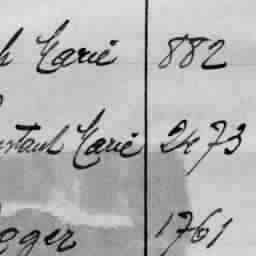 h Marie 882
nstant Marie 2473
oger 1761